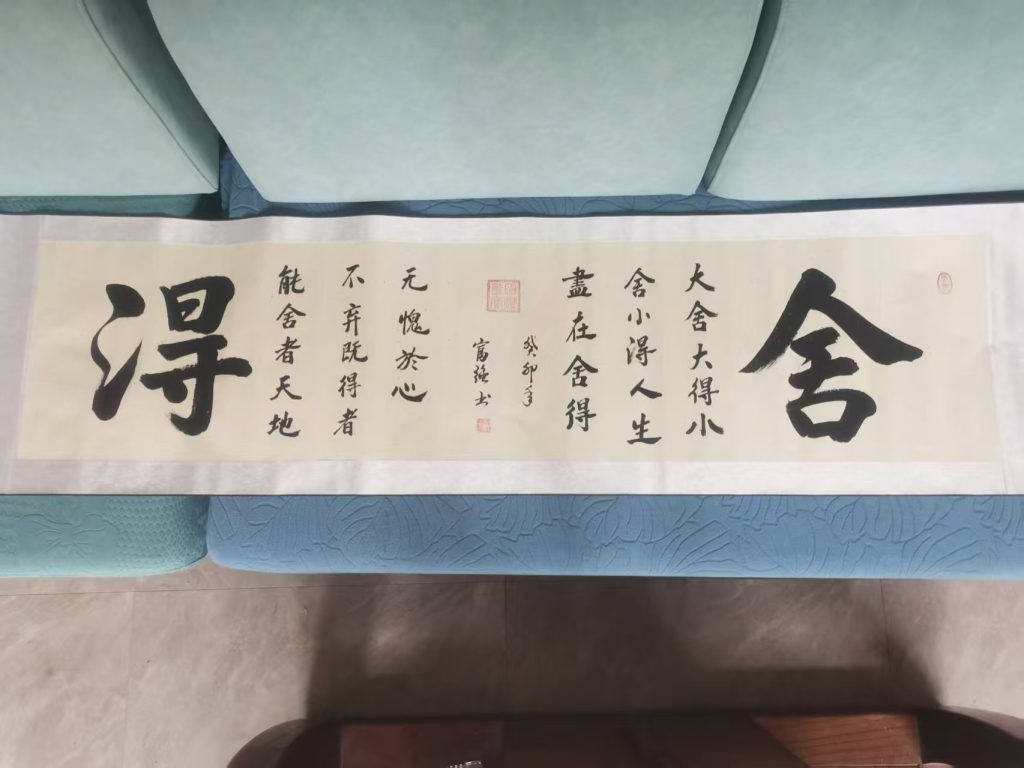 舍
大舍大得小
舍小得人生
盡在舍得
得
能舍者天地
不弃既得者
无愧於心
癸卯年
富书